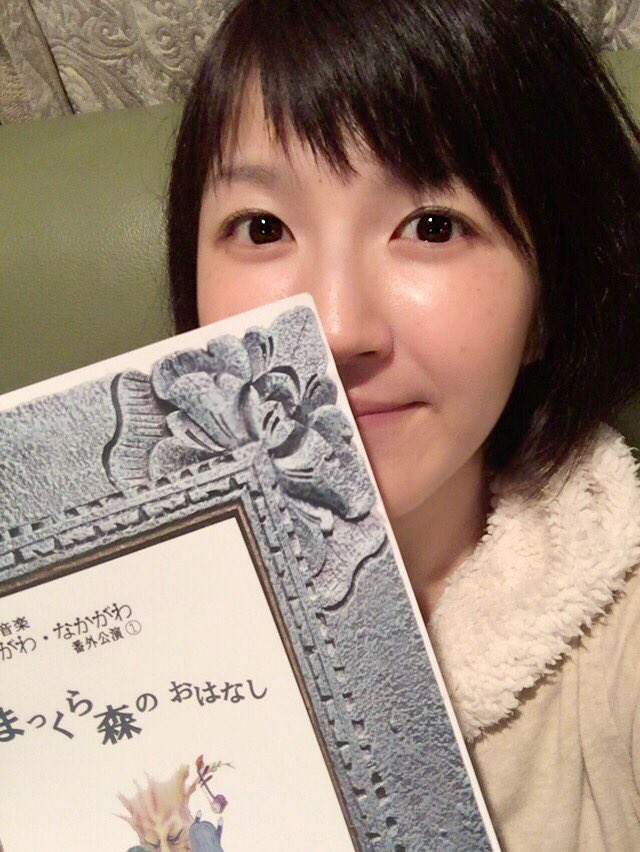 音楽
がわ・なかがわ
番外公演①
まっくら森の おはなし